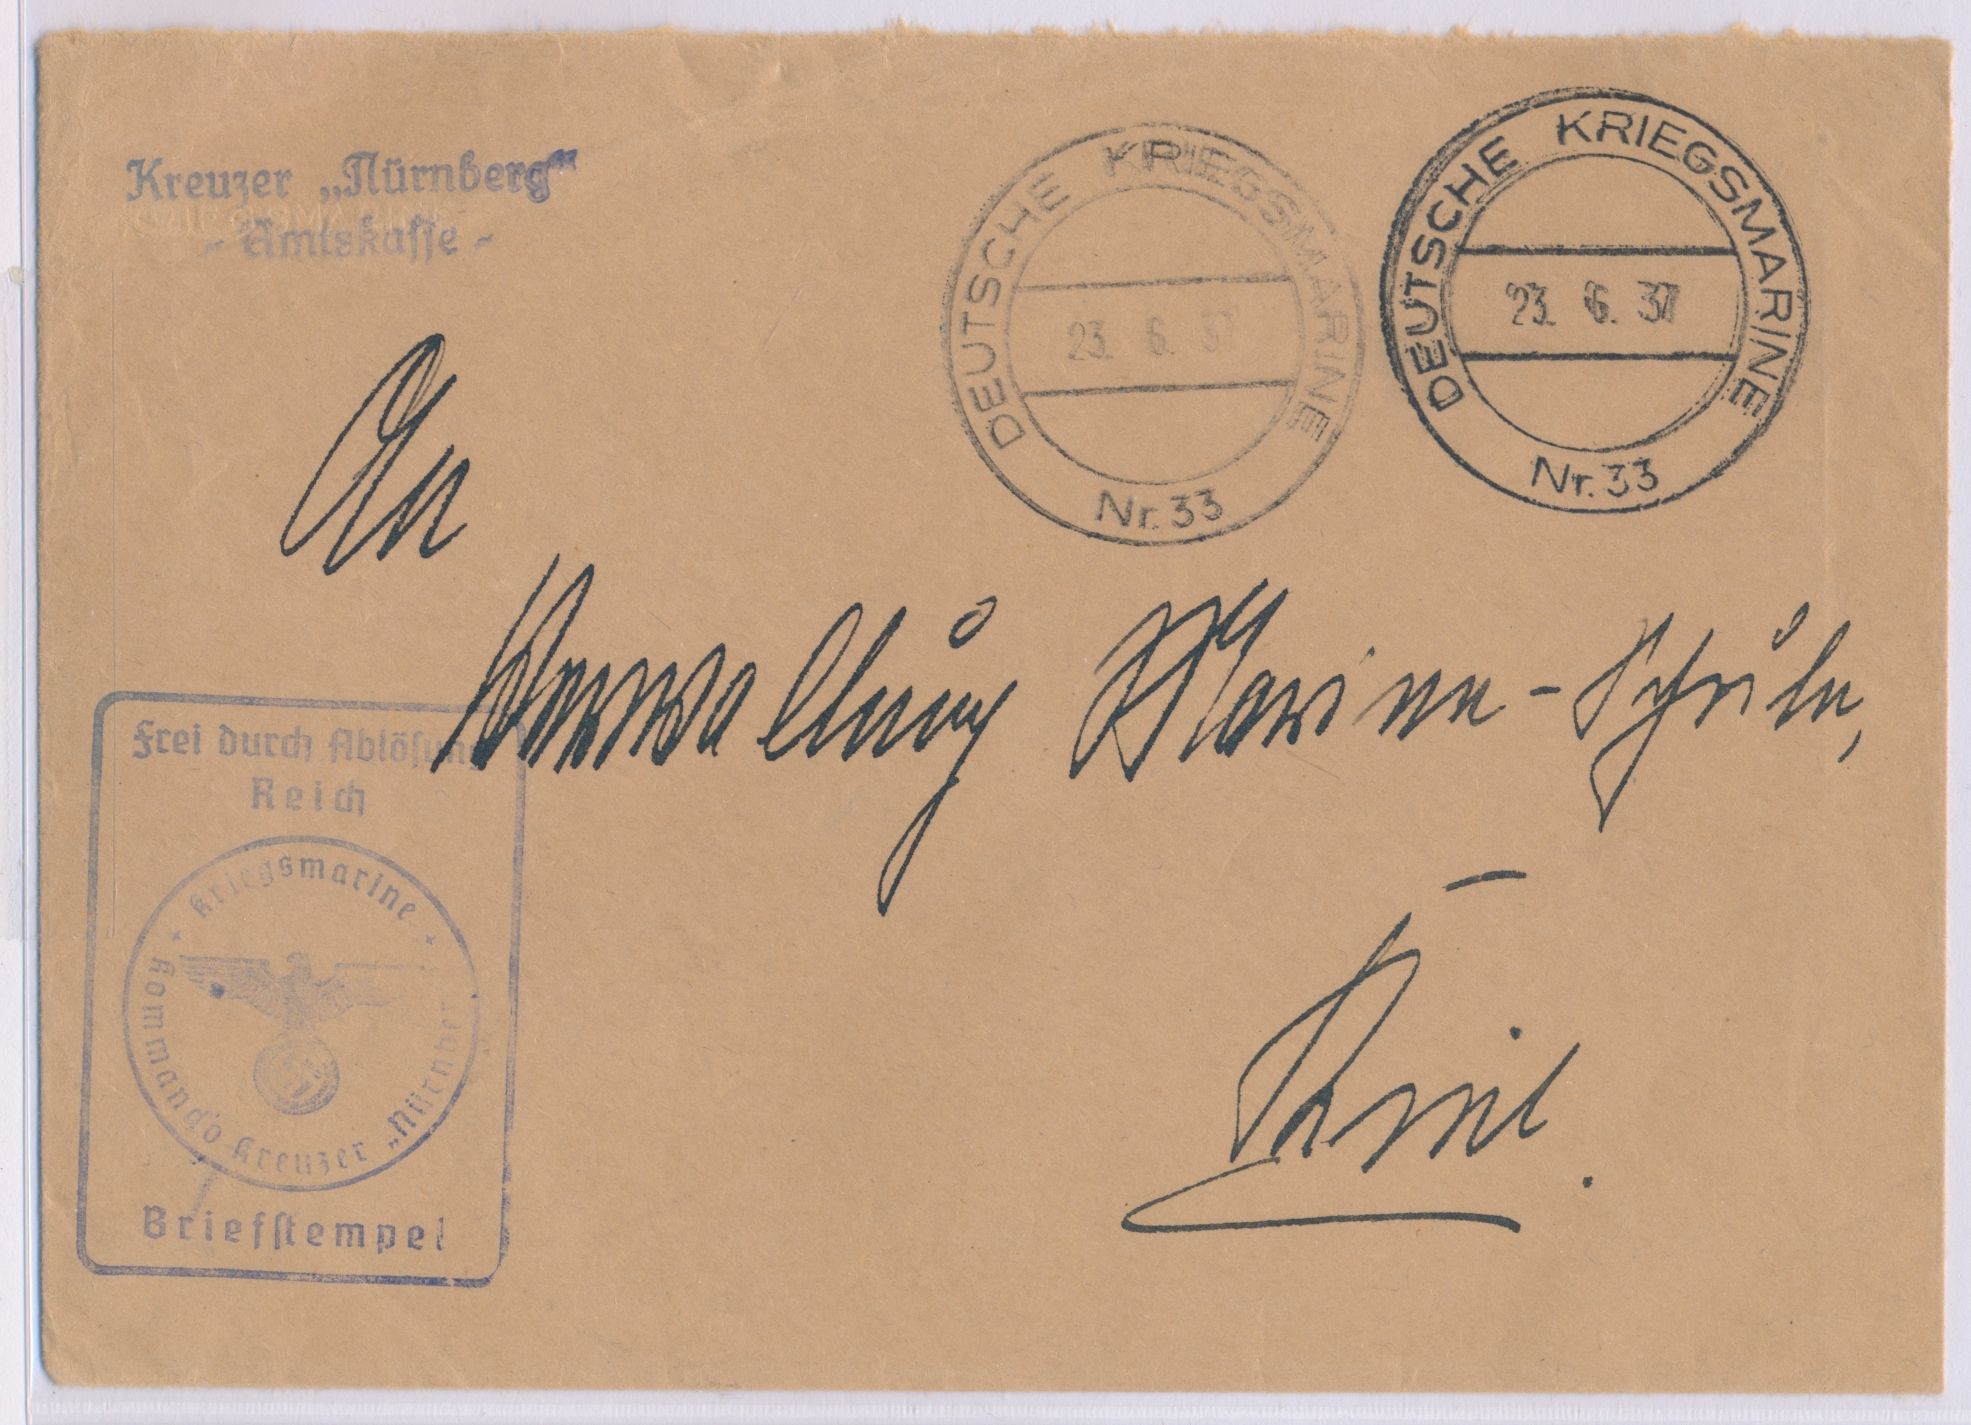 Kreuzer „Nürnberg“
- Amtskasse -
DEUTSCHE KRIEGSMARINE
23. 6. 37
Nr. 33
DEUTSCHE KRIEGSMARINE
23. 6. 37
Nr. 33
An
Verwaltung Marine-Schule,
Kiel.
Frei durch Ablösung
Reich
Kriegsmarine
Kommando Kreuzer „Nürnberg
Briefstempel